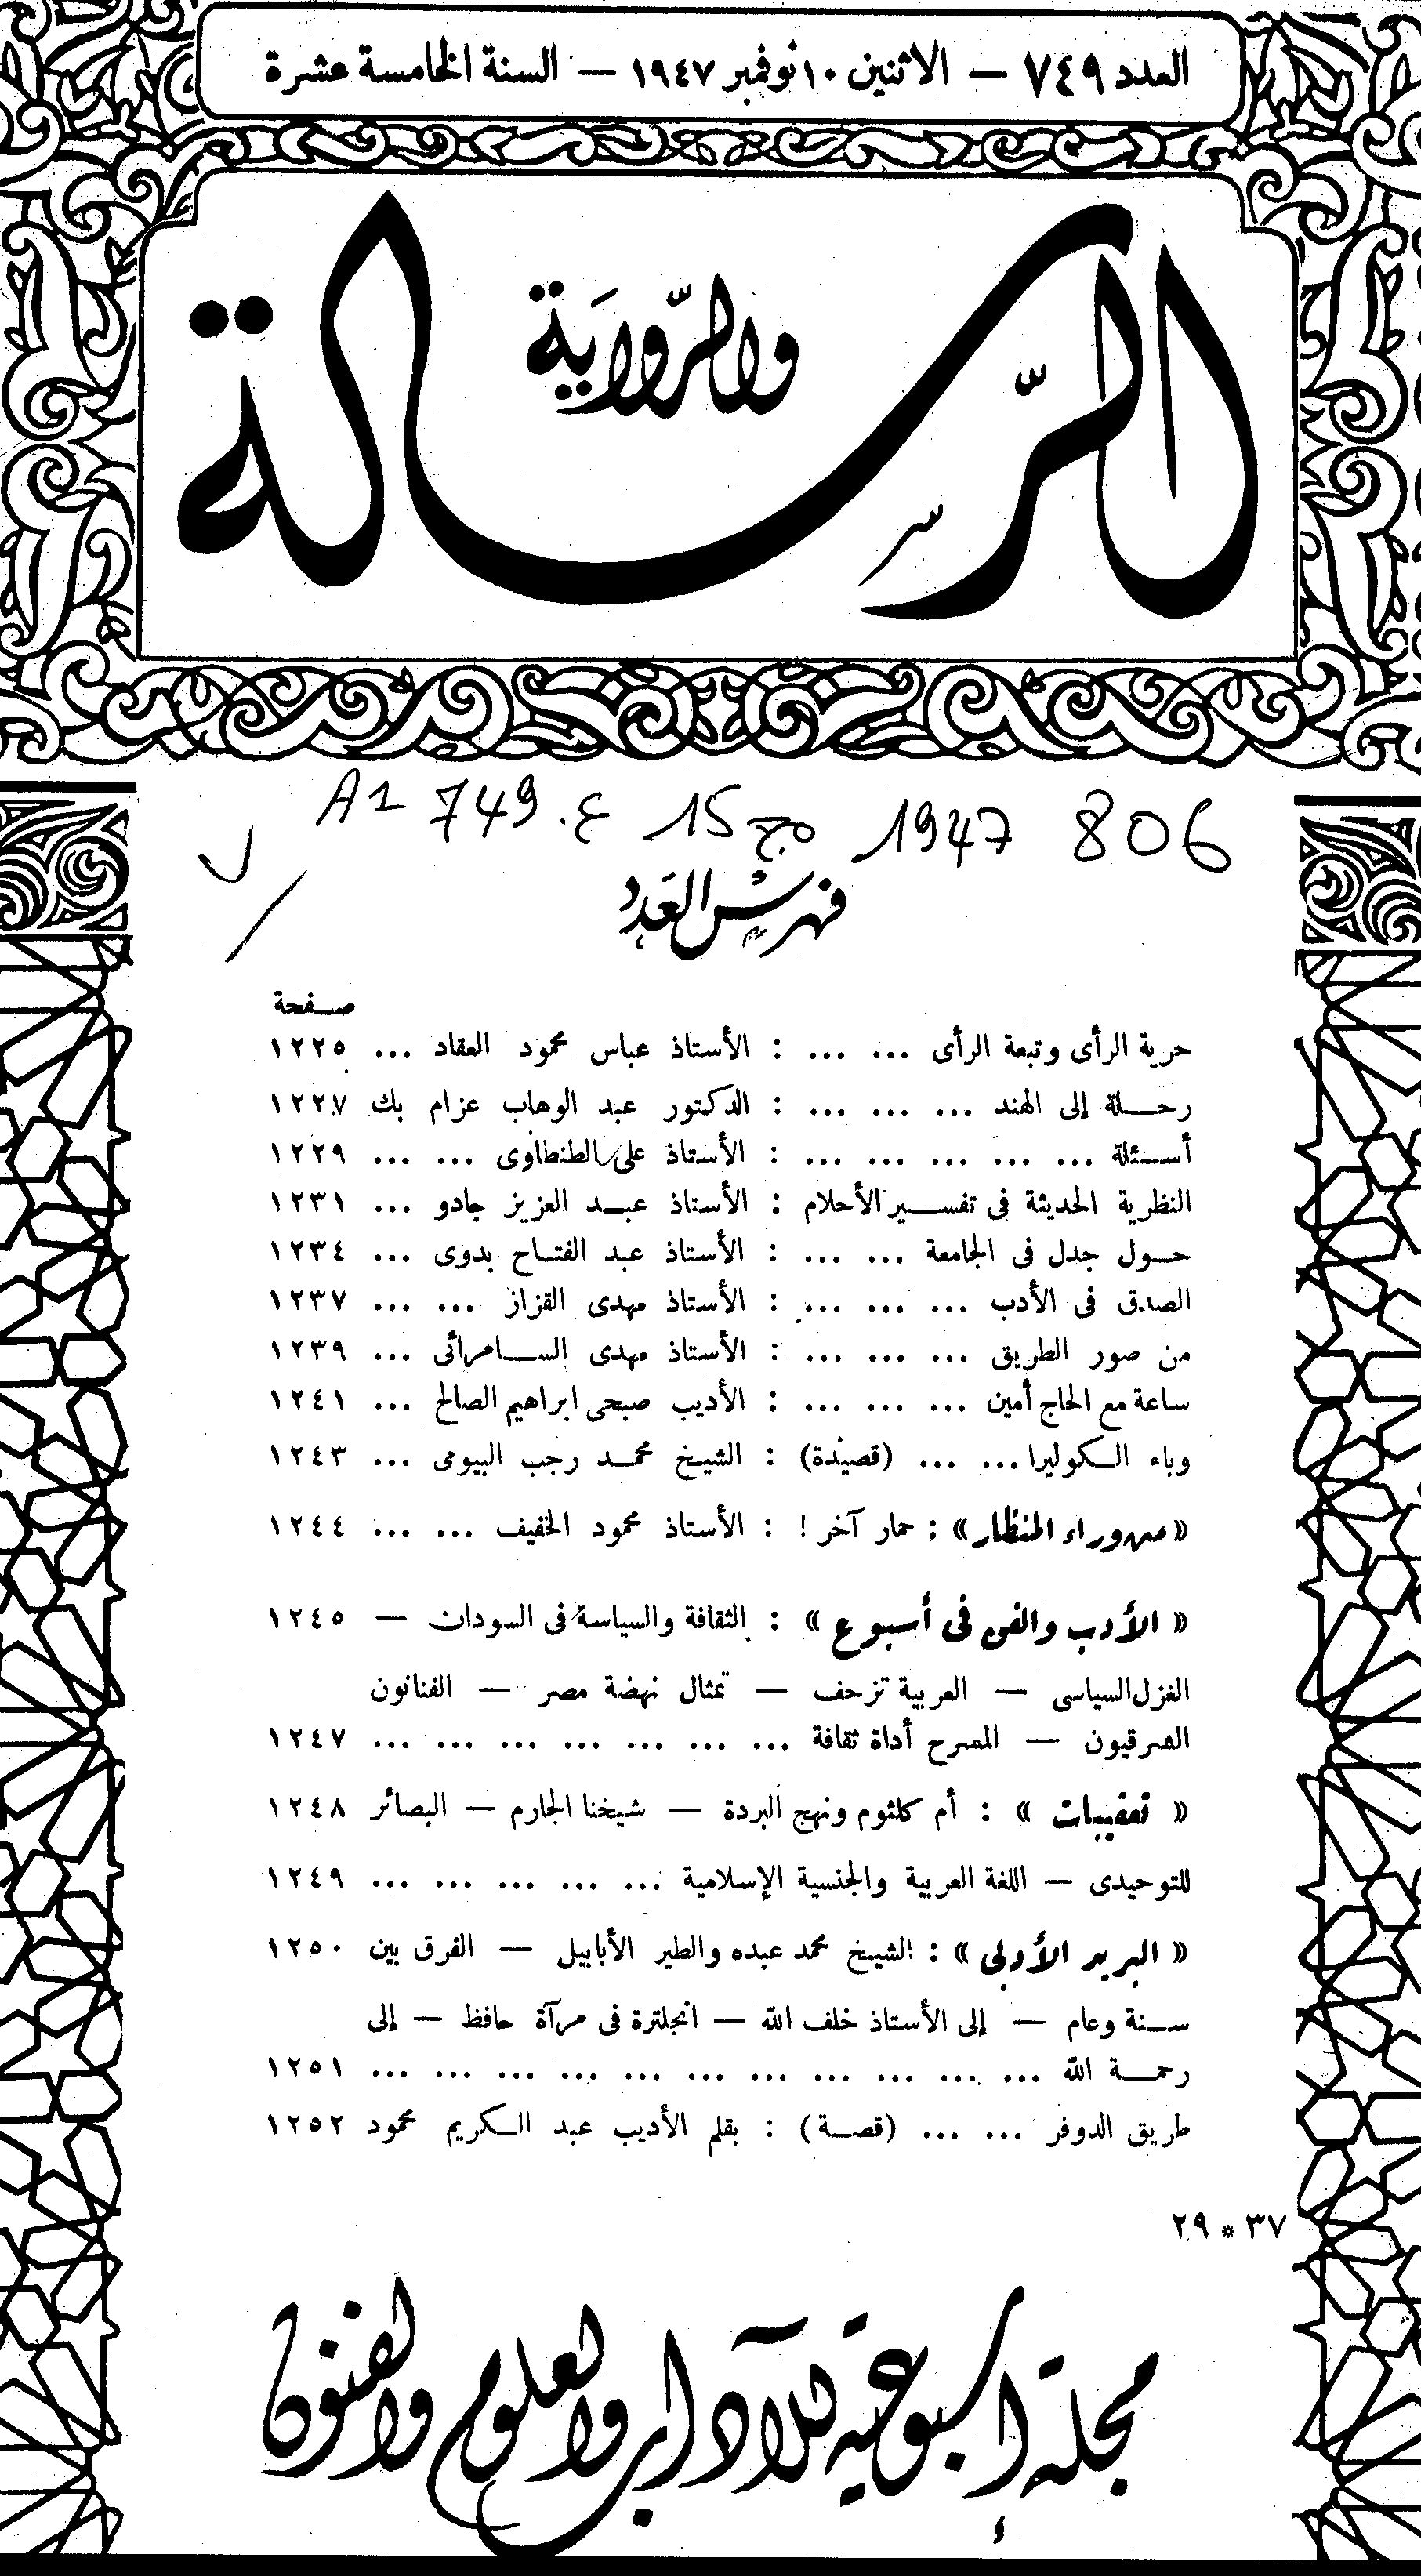 العدد ٧٤٩ — الاثنين ١٠ نوفمبر ١٩٤٧ — السنة الخامسة عشرة
الرسالة
والرواية
A1 749 ع. 15 مج 1947 806
فهرس العدد
صفحة
حرية الرأى وتبعة الرأى ... ... : الأستاذ عباس محمود العقاد ... ١٢٢٥
رحلة إلى الهند ... ... ... : الدكتور عبد الوهاب عزام بك ١٢٢٧
أسئلة ... ... ... ... ... : الأستاذ على الطنطاوى ... ... ١٢٢٩
النظرية الحديثة فى تفسير الأحلام : الأستاذ عبد العزيز جادو ... ١٢٣١
حول جدل فى الجامعة ... ... : الأستاذ عبد الفتاح بدوى ... ١٢٣٤
الصدق فى الأدب ... ... ... : الأستاذ مهدى القزاز ... ... ١٢٣٧
من صور الطريق ... ... ... : الأستاذ مهدى السامرائى ... ١٢٣٩
ساعة مع الحاج أمين ... ... ... : الأديب صبحى ابراهيم الصالح ... ١٢٤١
وباء الكوليرا ... ... (قصيدة) : الشيخ محمد رجب البيومى ... ١٢٤٣
«من وراء المنظار» : حمار آخر ! : الأستاذ محمود الخفيف ... ... ١٢٤٤
« الأدب والفن فى أسبوع » : الثقافة والسياسة فى السودان — ١٢٤٥
الغزل السياسى — العربية تزحف — تمثال نهضة مصر — الفنانون
الشرقيون — المسرح أداة ثقافة ... ... ... ... ... ... ... ١٢٤٧
« تعقيبات » : أم كلثوم ونهج البردة — شيخنا الجارم — البصائر ١٢٤٨
للتوحيدى — اللغة العربية والجنسية الإسلامية ... ... ... ... ... ١٢٤٩
« البريد الأدبى » : الشيخ محمد عبده والطير الأبابيل — الفرق بين ١٢٥٠
سنة وعام — إلى الأستاذ خلف الله — انجلترة فى مرآة حافظ — إلى
رحمة الله ... ... ... ... ... ... ... ... ... ... ... ١٢٥١
طريق الدوفر ... ... (قصة) : بقلم الأديب عبد الكريم محمود ١٢٥٢
٣٧ * ٢٩
مجلة أسبوعية للآداب والعلوم والفنون